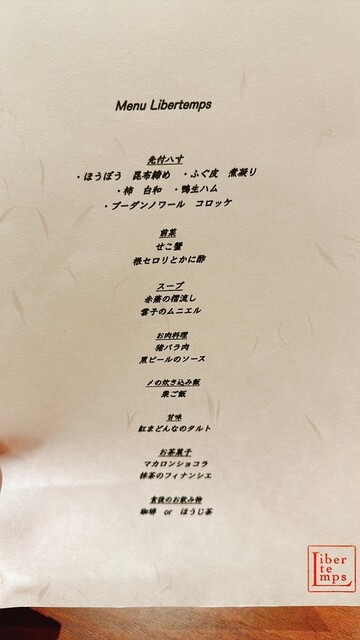 Menu Libertemps
先付八寸
・ほうぼう 昆布締め ・ふぐ皮 煮凝り
・柿 白和 ・鴨生ハム
・ブーダンノワール コロッケ
前菜
せこ蟹
根セロリとかに酢
スープ
赤蕪の摺流し
雲子のムニエル
お肉料理
猪バラ肉
黒ビールのソース
〆の炊き込み飯
栗ご飯
甘味
紅まどんなのタルト
お茶菓子
マカロンショコラ
抹茶のフィナンシエ
食後のお飲み物
珈琲 or ほうじ茶
Liber
te
mps